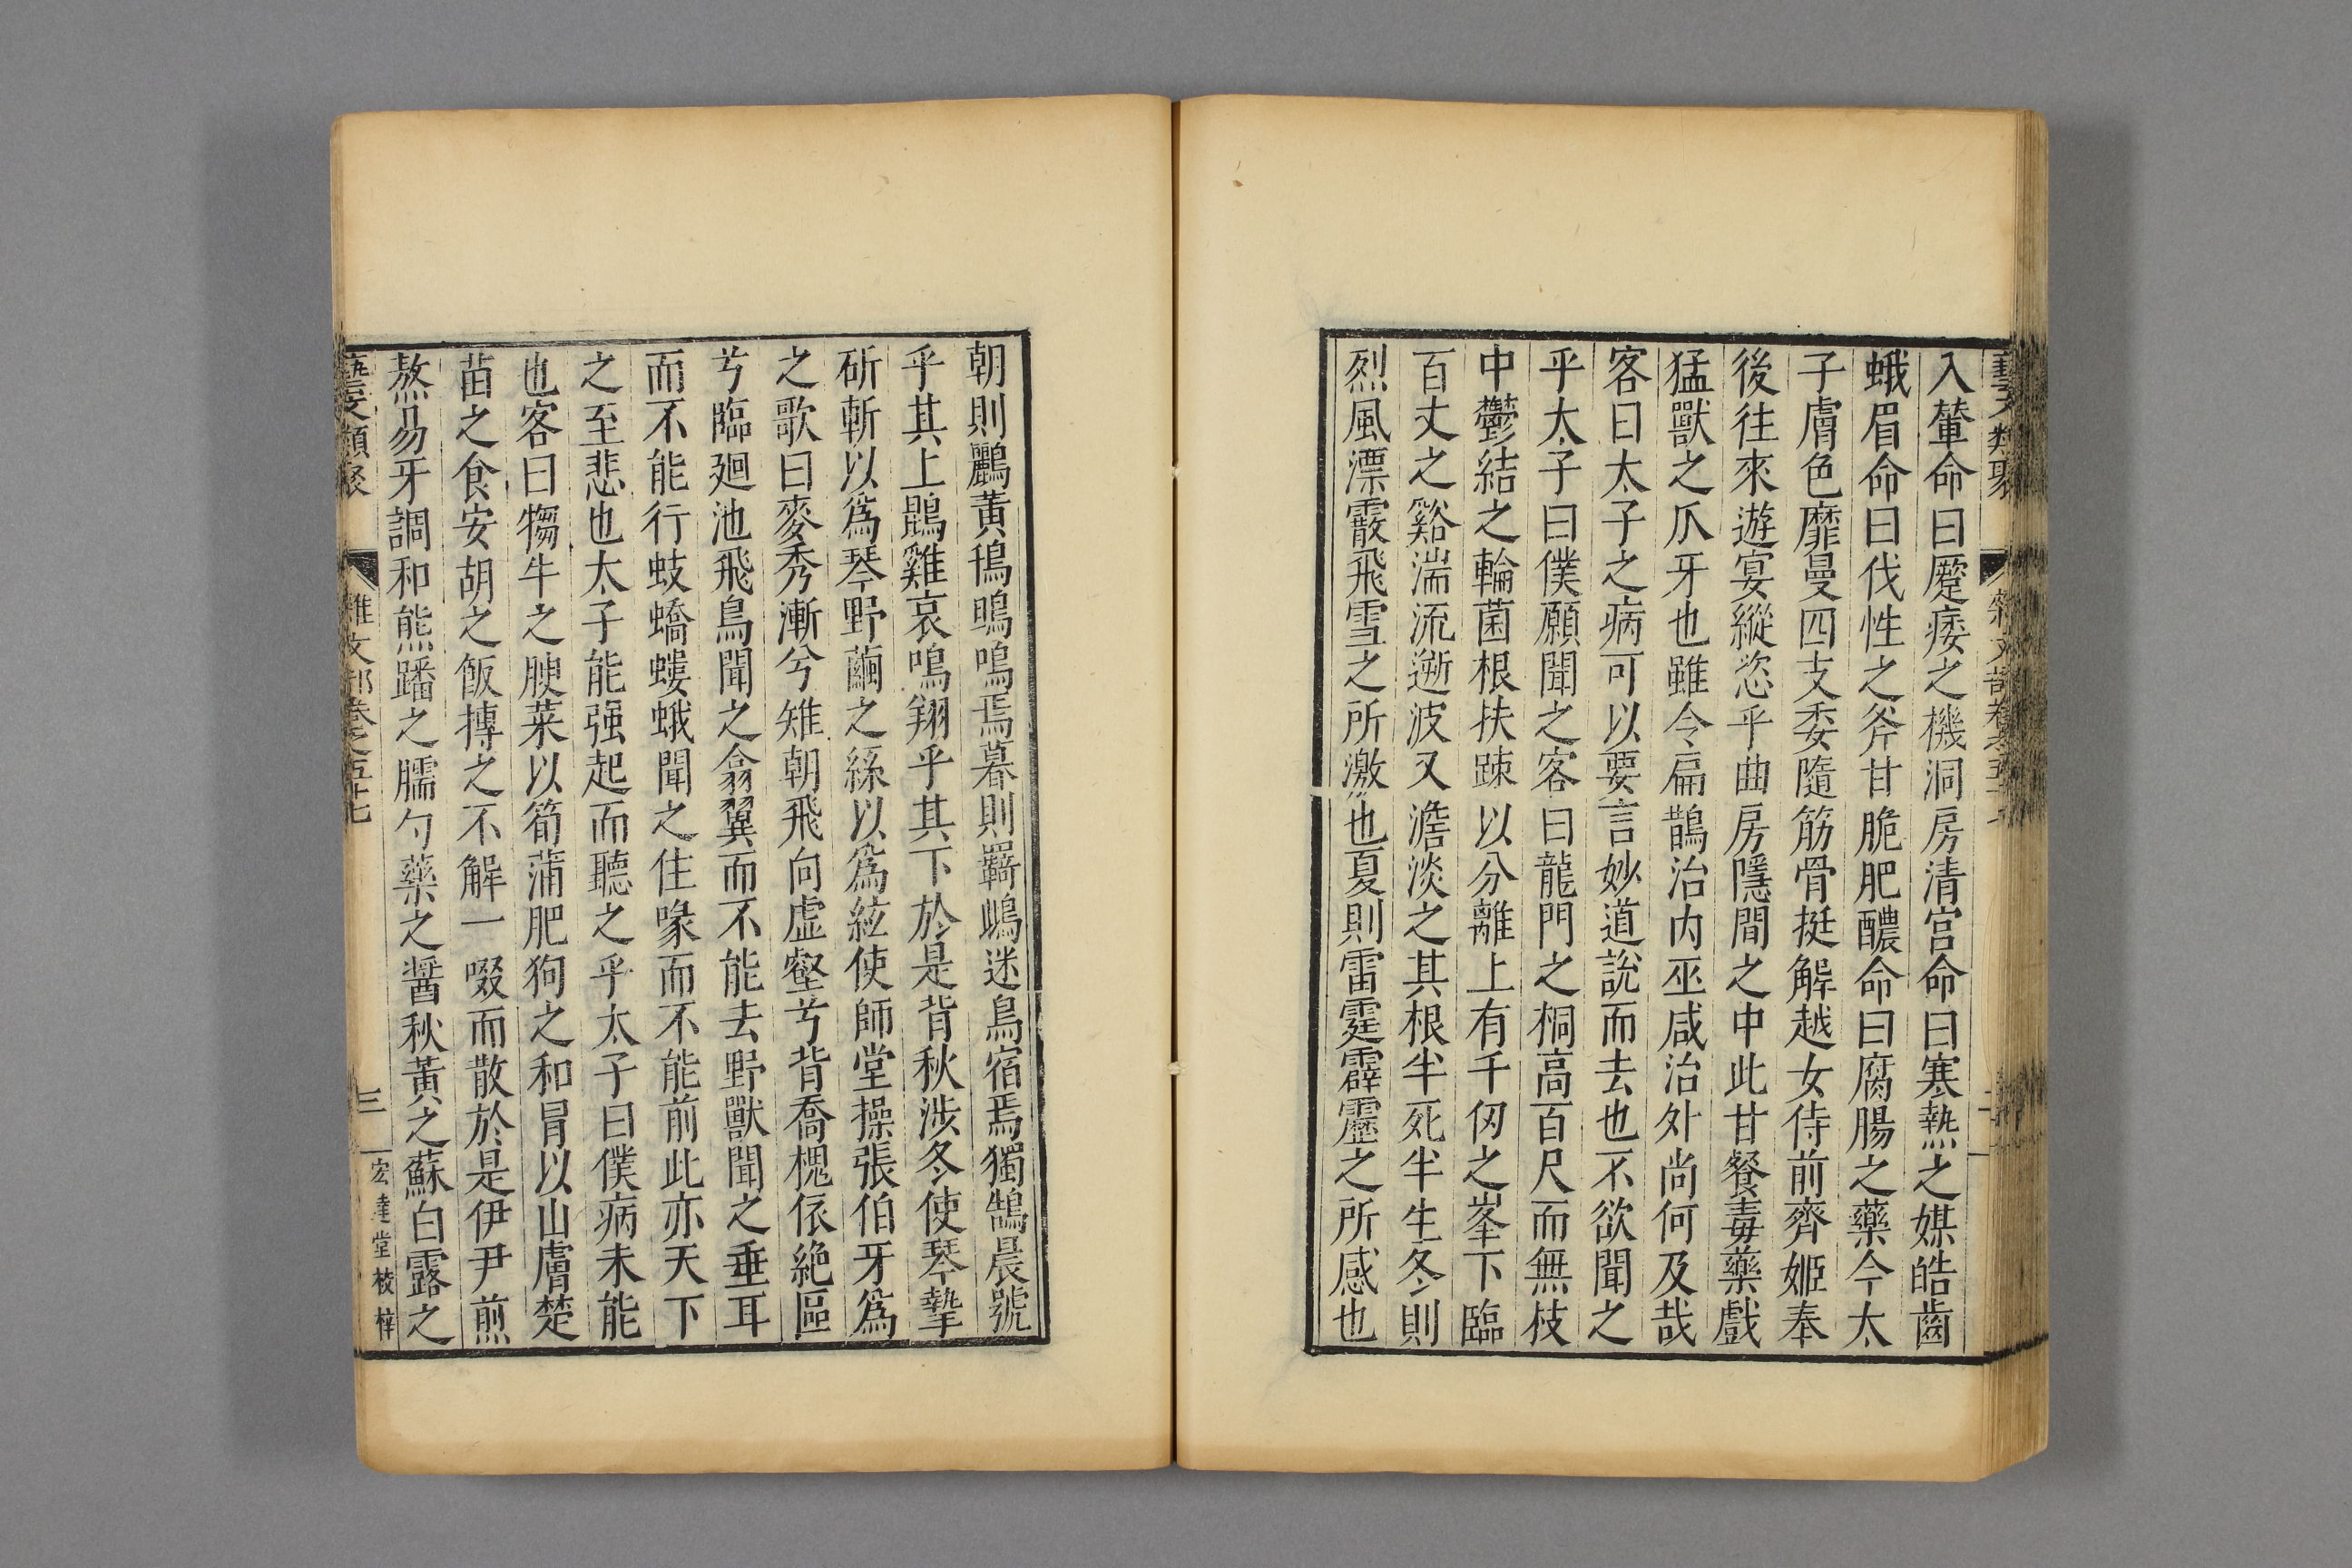 入輦命曰蹷痿之機洞房清宫命曰寒熱之媒皓齒
蛾眉命曰伐性之斧甘脆肥醲命曰腐腸之藥今太
子膚色靡曼四支委隨筋骨挺解越女侍前齊姬奉
後往來遊宴縱恣乎曲房隱間之中此甘餐毒藥戲
猛獸之爪牙也雖令扁鵲治内巫咸治外尚何及哉
客曰太子之病可以要言妙道説而去也不欲聞之
乎太子曰僕願聞之客曰龍門之桐高百尺而無枝
中鬱結之輪菌根扶踈以分離上有千仞之峯下臨
百丈之谿湍流遡波又澹淡之其根半死半生冬則
烈風漂霰飛雪之所激也夏則雷霆霹靂之所感也
朝則鸝黃鳱鴠鳴焉暮則羇鵃迷鳥宿焉獨鵠晨號
乎其上鵾雞哀鳴翔乎其下於是背秋涉冬使琴摯
斫斬以爲琴野繭之絲以爲絃使師堂操張伯牙爲
之歌曰麥秀漸兮雉朝飛向虛壑兮背喬槐依絶區
兮臨廻池飛鳥聞之翕翼而不能去野獸聞之垂耳
而不能行蚑蟜螻蛾聞之住喙而不能前此亦天下
之至悲也太子能强起而聽之乎太子曰僕病未能
也客曰犓牛之腴菜以筍蒲肥狗之和冐以山膚楚
苗之食安胡之飯摶之不解一啜而散於是伊尹煎
熬昜牙調和熊蹯之臑勺藥之醤秋黃之蘇白露之
藝文類聚 雜文部卷之五十七 三 宏達堂校梓